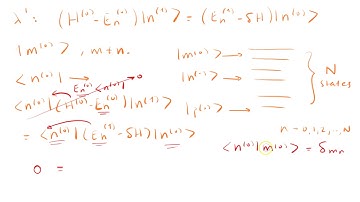 λ¹: (H⁽⁰⁾ - Eₙ⁽⁰⁾)|n⁽¹⁾> = (Eₙ⁽¹⁾ - δH)|n⁽⁰⁾>
|m⁽⁰⁾> , m ≠ n.
<n⁽⁰⁾| →
Eₙ⁽⁰⁾ <n⁽⁰⁾| → 0
<n⁽⁰⁾|(H⁽⁰⁾ - Eₙ⁽⁰⁾)|n⁽¹⁾>
= <n⁽⁰⁾|(Eₙ⁽¹⁾ - δH)|n⁽⁰⁾>
0 =
|m⁽⁰⁾> →
|n⁽⁰⁾> →
|⁽⁰⁾> →
N
states
n = 0,1,2,...N
<n⁽⁰⁾|m⁽⁰⁾> = δₘₙ